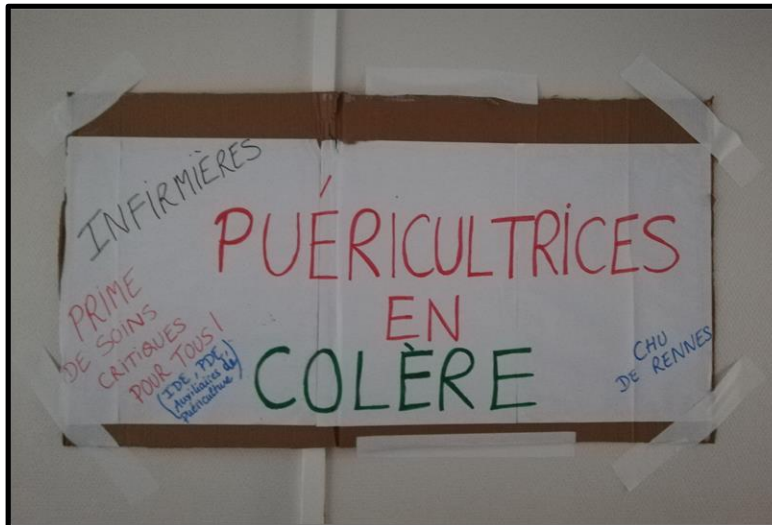 INFIRMIÈRES
PUÉRICULTRICES
EN
COLÈRE
PRIME
DE SOINS
CRITIQUES
POUR TOUS!
(IDE, PDE,
Auxiliaires de
puériculture)
CHU
DE RENNES